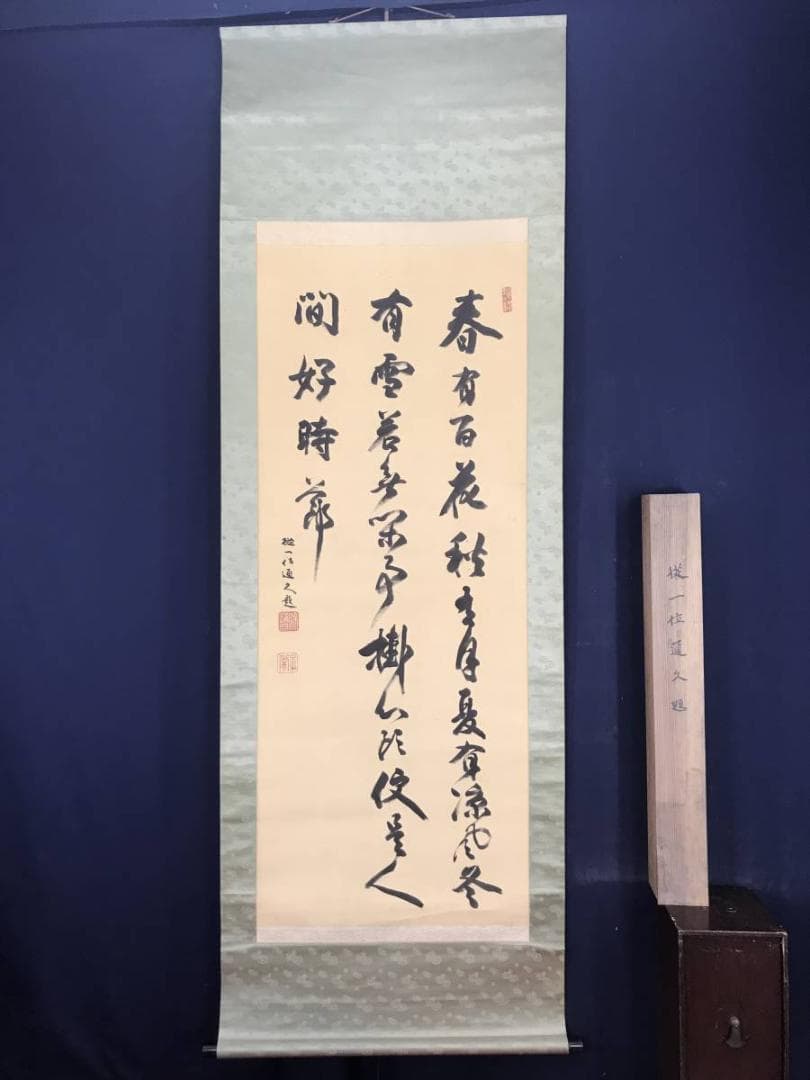 春有百花秋有月夏有凉風冬
有雪若無閑事掛心頭便是人
間好時節
従一位通久題
従一位通久題